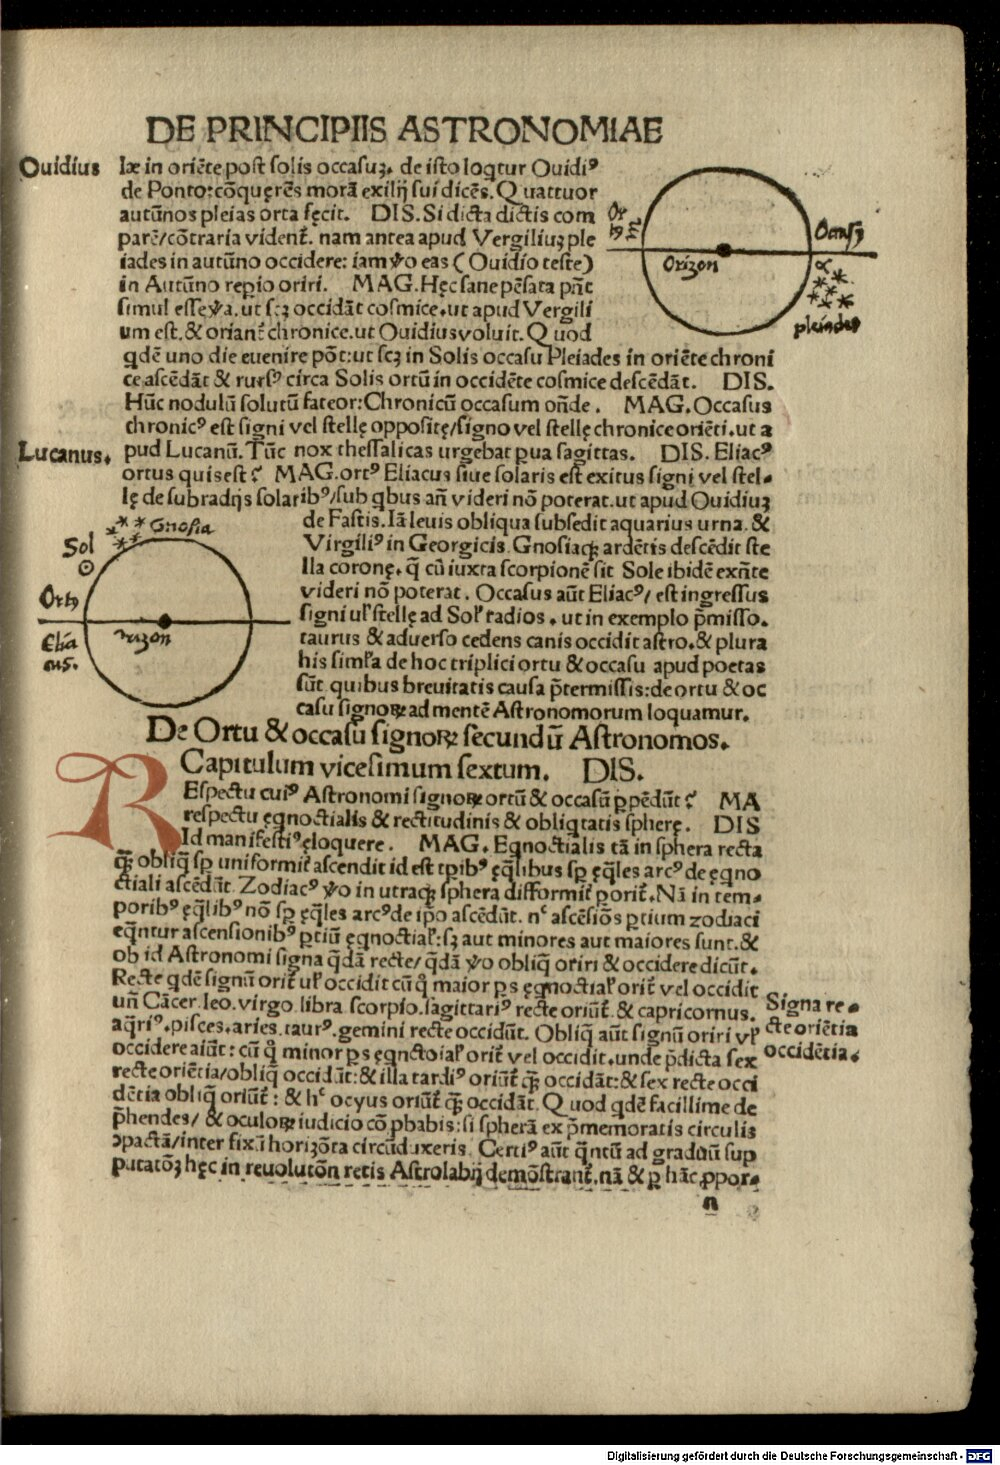 DE PRINCIPIIS ASTRONOMIAE
Ouidius
læ in oriẽte post solis occasuʒ. de isto loqtur Ouidiꝰ
de Ponto: cõquerẽs morã exilij sui dicẽs. Quattuor
autũnos pleias orta fęcit. DIS. Si dicta dictis com
parẽ/cõtraria vident̃. nam antea apud Vergiliuʒ ple
iades in autũno occidere: iam ꝟo eas (Ouidio teste)
in Autũno reꝑio oriri. MAG. Hęc sane pẽsata pñt
simul esse ꝟa. ut scʒ occidãt cosmice. ut apud Vergili
um est. & oriant̃ chronice. ut Ouidius voluit. Quod
qdẽ uno die euenire põt: ut scʒ in Solis occasu Pleiades in oriẽte chroni
ce ascẽdãt & rursꝰ circa Solis ortũ in occidẽte cosmice descẽdãt. DIS.
Hũc nodulũ solutũ fateor: Chronicũ occasum oñde. MAG. Occasus
chronicꝰ est signi vel stellę oppositę/signo vel stellę chronice oriẽti. ut a
Lucanus.
pud Lucanũ. Tũc nox thessalicas urgebat ꝑua sagittas. DIS. Eliacꝰ
ortus quis est? MAG. ortꝰ Eliacus siue solaris est exitus signi vel stel
lę de sub radijs solaribꝰ/sub qbus añ videri nõ poterat. ut apud Ouidiuʒ
de Fastis. Iã leuis obliqua subsedit aquarius urna. &
Virgiliꝰ in Georgicis. Gnosiaqꝫ ardẽtis descẽdit ste
lla coronę. q̃ cũ iuxta scorpionẽ sit Sole ibidẽ exñte
videri nõ poterat. Occasus aũt Eliacꝰ/ est ingressus
signi ul̕ stellę ad Sol̕ radios. ut in exemplo p̃misso.
taurus & aduerso cedens canis occidit astro. & plura
his simľa de hoc triplici ortu & occasu apud poetas
sũt. quibus breuitatis causa p̃termissis: de ortu & oc
casu signoꝝ ad mentẽ Astronomorum loquamur.
Or
Occasꝰ
Orizon
pleiades
Gnosia
Sol
Ortꝰ
Elia
cus.
orizon
De Ortu & occasu signoꝝ secundũ Astronomos.
Capitulum vicesimum sextum. DIS.
REspectu cuiꝰ Astronomi signoꝝ ortũ & occasũ ꝑpẽdũt? MA
respectu ęqnoctialis & rectitudinis & obliqtatis spherę. DIS
Id manifestiꝰ eloquere. MAG. Eqnoctialis tã in sphera recta
qꝫ obliq̃ sꝑ uniformit̃ ascendit id est tꝑibꝰ ęq̃libus sꝑ ęq̃les arcꝰ de ęqno
ctiali ascẽdũt. Zodiacꝰ ꝟo in utraqꝫ sphera difformit̃ porit̃. Nã in tem
poribꝰ ęq̃libꝰ nõ sꝑ ęq̃les arcꝰ de ip̃o ascẽdũt. nᶜ ascẽsiões ꝑtium zodiaci
eq̃ntur ascensionibꝰ ꝑtiũ ęqnoctial̕: sʒ aut minores aut maiores sunt. &
ob id Astronomi signa q̃dã recte/ q̃dã ꝟo obliq̃ oriri & occidere dicũt.
Recte qdẽ signũ orit̃ ul̕ occidit cũ q̃ maior ps ęqnoctial̕ orit̃ vel occidit
uñ Cãcer. leo. virgo. libra. scorpio. sagittariꝰ recte oriũt̃. & capricornus.
aq̃riꝰ. pisces. aries. taurꝰ. gemini recte occidũt. Obliq̃ aũt signũ oriri vl̕
occidere aiũt: cũ q̃ minor ps ęqnctoial̕ orit̃ vel occidit. unde p̃dicta sex
Signa re
cte oriẽtia
occidẽtia.
recte oriẽtia/obliq̃ occidũt: & illa tardiꝰ oriũt̃ qꝫ occidãt: & sex recte occi
dẽtia obliq̃ oriũt̃: & hᶜ ocyus oriũt̃ qꝫ occidãt. Quod qdẽ facillime de
p̃hendes/ & oculoꝝ iudicio cõꝓbabis: si spherã ex p̃memoratis circulis
ↄpactã/inter fixũ horizõta circũduxeris. Certiꝰ aũt q̃ntũ ad graduũ sup
putatõʒ hęc in reuolutõn retis Astrolabij demõstrant̃. nã & ꝑ hãc ꝓpor
n
Digitalisierung gefördert durch die Deutsche Forschungsgemeinschaft - DFG